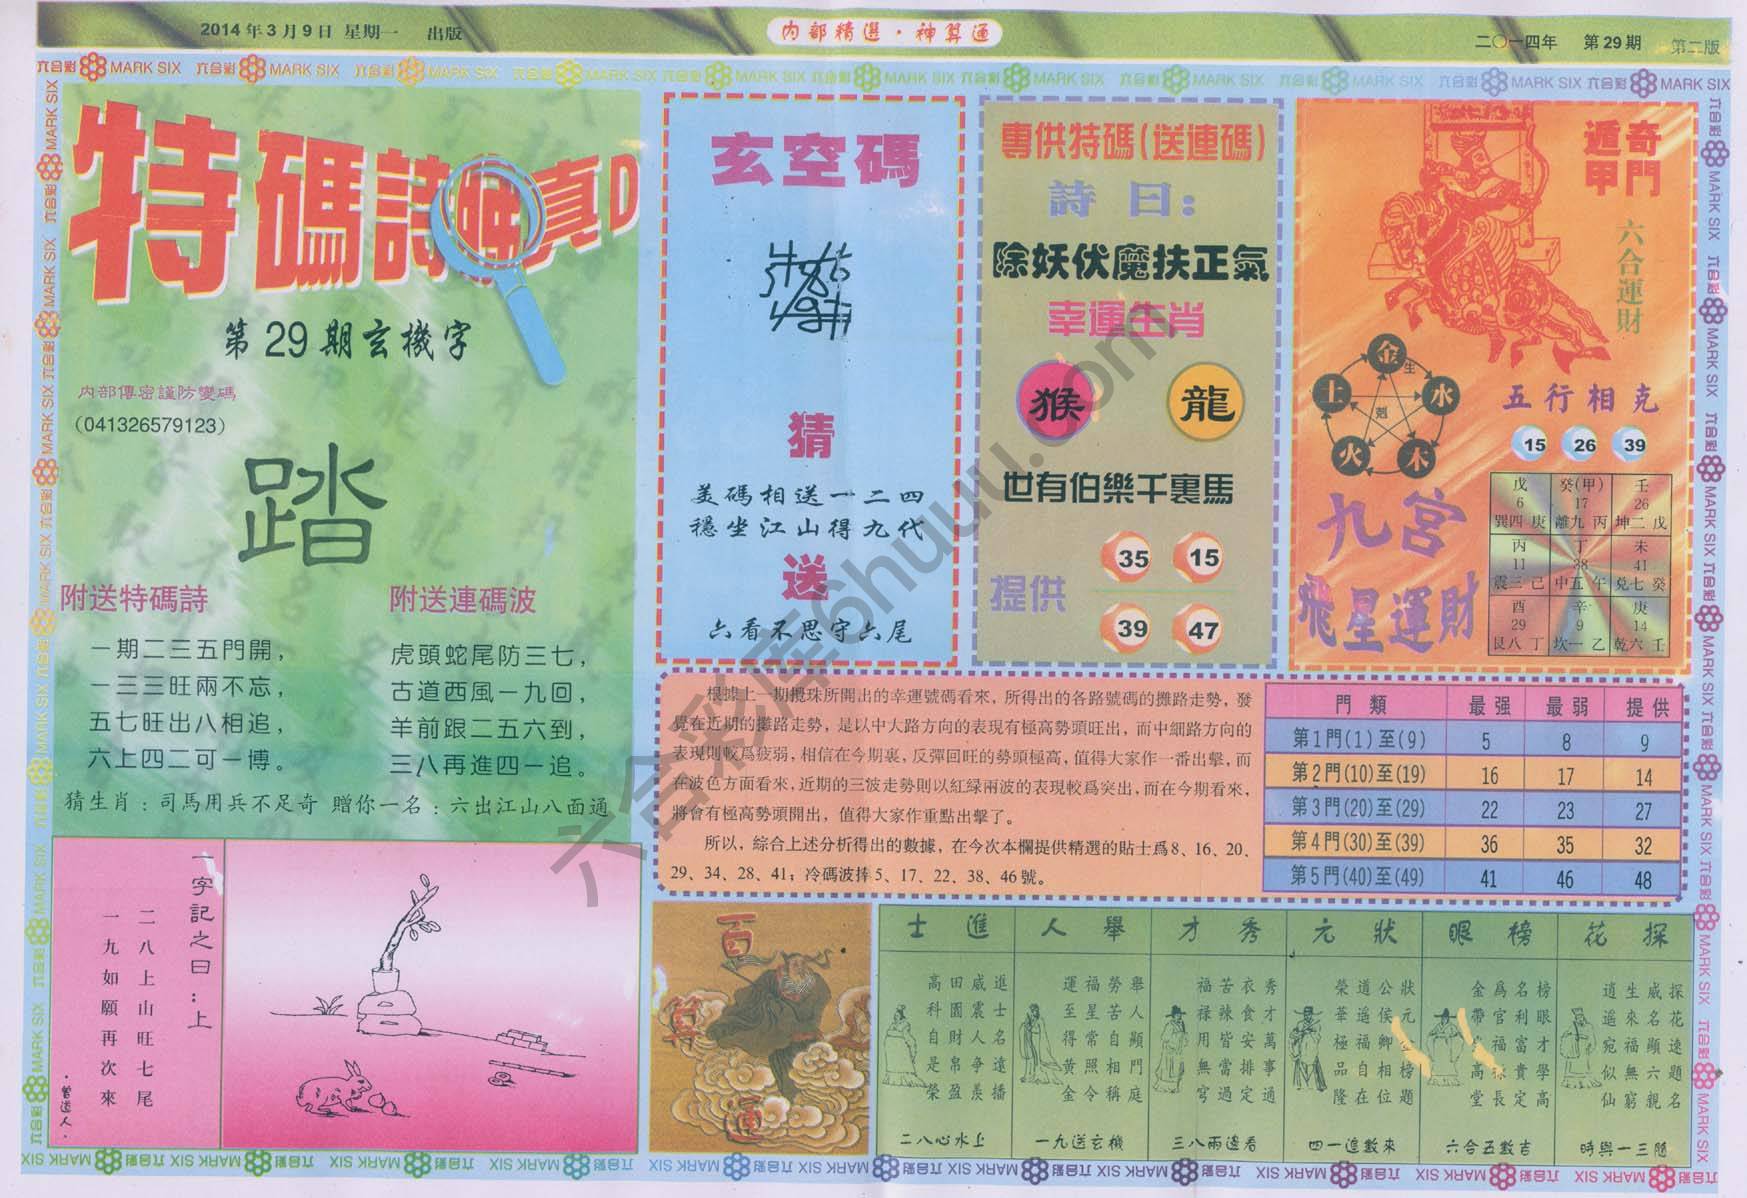 2014年3月9日 星期一 出版
内部精選·神算通
二〇一四年 第29期 第二版
六合彩 MARK SIX
特碼詩
真D
第29期玄機字
内部傳密謹防變碼
（041326579123）
踏
附送特碼詩
一期二三五門開，
一三三旺兩不忘，
五七旺出八相追，
六上四二可一博。
附送連碼波
虎頭蛇尾防三七，
古道西風一九回，
羊前跟二五六到，
三八再進四一追。
猜生肖：司馬用兵不足奇 贈你一名：六出江山八面通
一字記之曰：上
二八上山旺七尾
一九如願再次來
·曾道人·
玄空碼
猜
美碼相送一二四
穩坐江山得九代
送
六看不思守六尾
專供特碼(送連碼)
詩曰：
除妖伏魔扶正氣
幸運生肖
猴 龍
世有伯樂千裏馬
提供
35 15
39 47
奇門
遁甲
六合運財
金 生 水 木 火 土 剋
五行相克
15 26 39
九宮
飛星運財
戊 癸(甲) 壬
6 17 26
巽四 庚 離九 丙 坤二 戊
丙 丁 未
11 38 41
震三 己 中五 午 兌七 癸
酉 辛 庚
29 9 14
艮八 丁 坎一 乙 乾六 壬
根據上一期攪珠所開出的幸運號碼看來，所得出的各路號碼的攤路走勢，發
覺在近期的攤路走勢，是以中大路方向的表現有極高勢頭旺出，而中細路方向的
表現則較爲疲弱，相信在今期裏，反彈回旺的勢頭極高，值得大家作一番出擊，而
在波色方面看來，近期的三波走勢則以紅緑兩波的表現較爲突出，而在今期看來，
將會有極高勢頭開出，值得大家作重點出擊了。
所以，綜合上述分析得出的數據，在今次本欄提供精選的貼士爲8、16、20、
29、34、28、41；冷碼波捧5、17、22、38、46號。
門類 最强 最弱 提供
第1門(1)至(9) 5 8 9
第2門(10)至(19) 16 17 14
第3門(20)至(29) 22 23 27
第4門(30)至(39) 36 35 32
第5門(40)至(49) 41 46 48
百算運
士進
進士名遠播
威震人争羨
田園財帛盈
高科自是榮
二八心水上
人舉
舉人顯門庭
勞苦自相稱
福星常照令
運至得黄金
一九送玄機
才秀
秀才萬事通
衣食安排定
苦辣皆當過
福禄用無窮
三八兩邊看
元狀
狀元金榜題
公侯卿相位
道遥福自在
榮華極品隆
四一追數來
眼榜
榜眼才學高
名利富貴定
爲官福禄長
金帶高堂
六合五數吉
花探
探花速題名
威名顯六親
生來福無窮
逍遥宛似仙
時與一三隨
六合彩库6huuu.com